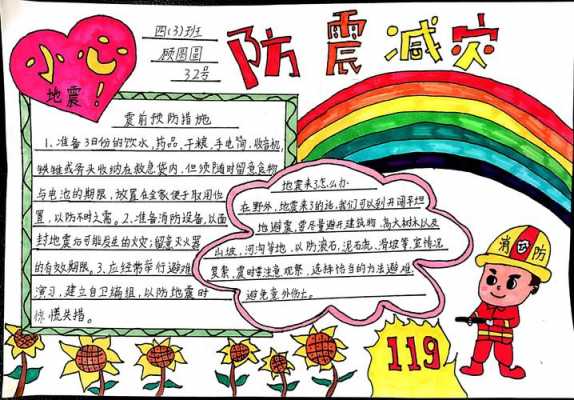 小心
地震！
四(3)班
顾图圆
32号
防震减灾
震前预防措施
1、准备3日份的饮水，药品，干粮，手电筒，收音机，
铁锤或斧头收纳在救急袋内，但须随时留意食物
与电池的期限，放置在全家便于取用位
置，以防不时之需。2、准备消防设备，以面
封地震后可能发生的火灾；留意灭火器
的有效期限。3、应经常举行避难
演习，建立自卫编组，以防地震时
惊慌失措。
地震来了怎么办
在野外，地震来了的话，我们可以到开阔平坦
地避震，要尽量避开建筑物，高大树木以及
山坡，河沟等地，以防滚石，泥石流，滑坡等，宜情况
复杂，震时要注意观察，选择恰当的方法避难
避免意外伤亡。
消防
119